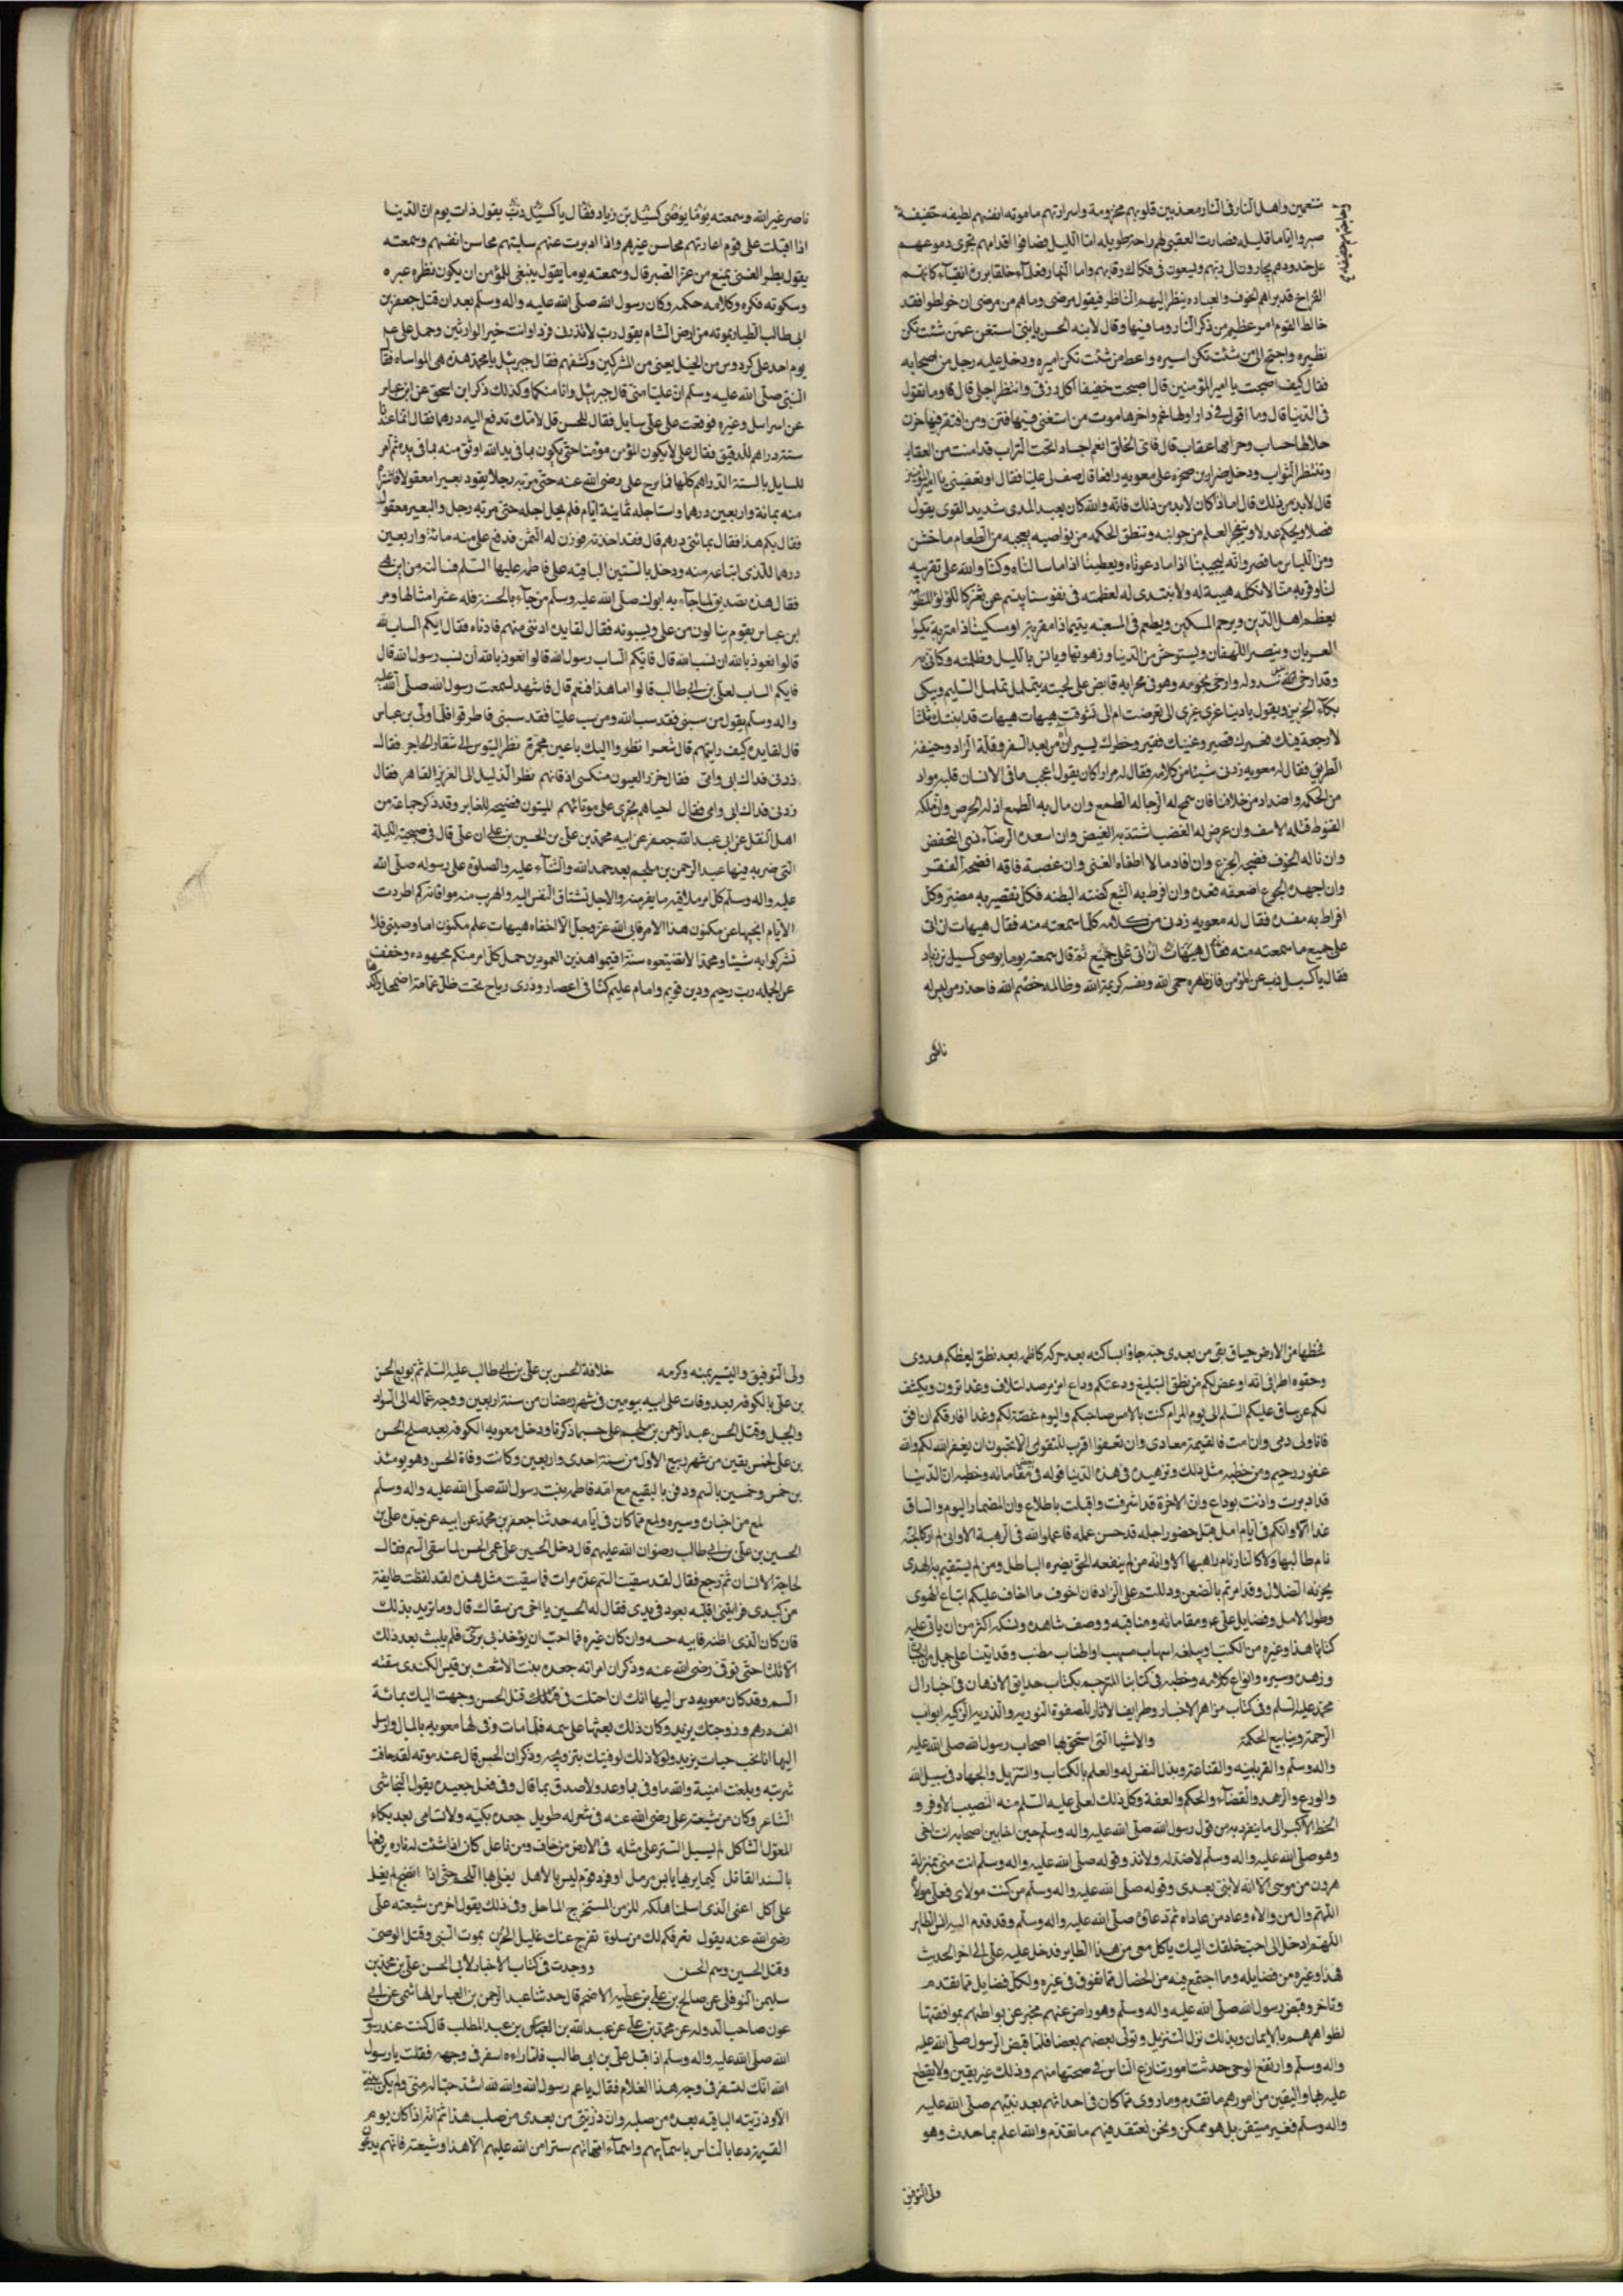 متنعمين واهل النار في النار معذبين قلوبهم محزونة واسرارتهم مامونه انفسهم لطيفه خفيفة
صبروا اياما قليله فصارت العقبى لهم راحة طويله اما الليل فصافوا اقدامهم تجرى دموعهم
على خدودهم يجارون الى ربهم ويسعون في فكاك رقابهم واما النهار فعلماء حلماء بررة اتقياء كانهم
القراح قد براهم الخوف والعباده ينظر اليهم الناظر فيقول مرضى وما هم من مرضى ان خولطوا فقد
خالط القوم امر عظيم من ذكر النار وما فيها وقال لابنه الحسن يا بنى استغن عمن شئت تكن
نظيره واحتج الى من شئت تكن اسيره واعط من شئت تكن اميره ودخل عليه رجل من اصحابه
فقال كيف اصبحت يا امير المؤمنين قال اصبحت ضعيفا اكل رزقى وانتظر اجلى قال قا وما تقول
فى الدنيا قال وما اقول فى دار اولها غم واخرها موت من استغنى فيها فتن ومن افتقر فيها حزن
حلالها حساب وحرامها عقاب قال فاى الخلق انعم اجساد تحت التراب قد امنت من العقاب
وتنتظر الثواب ودخل ضرار بن ضمره على معويه فقال صف لى عليا فقال او تعفينى يا امير المؤمنين
قال لابد من ذلك قال اما اذ كان لابد من ذلك فانه والله كان بعيد المدى شديد القوى يقول
فصلا ويحكم عدلا ويتفجر العلم من جوانبه وتنطق الحكمه من نواصيه يعجبه من الطعام ما خشن
ومن اللباس ما قصر وانه ليجيبنا اذا ما دعوناه ويعطينا اذا ما سالناه وكنا والله على تقريبه
لنا وقربه منا لا نكلمه هيبة له ولا نبتدى له لعظمته فى نفوسنا يبتسم عن ثغر كاللؤلؤ المنظوم
يعظم اهل الدين ويرحم المسكين ويطعم فى المسغبه يتيما ذا مقربة او مسكينا ذا متربة يكسوا
العريان وينصر اللهفان ويستوحش من الدنيا وزهوتها ويانس بالليل وظلمته وكانى به
وقد ارخى الليل سدوله وارخى نجومه وهو فى محرابه قابض على لحيته يتململ تململ السليم ويبكى
بكاء الحزين ويقول يا دنيا غرى غيرى الى تعرضت ام الى تشوقت هيهات هيهات قد ابنتك ثلثا
لا رجعة فيك فعمرك قصير وعيشك فقير وخطرك يسير اه من بعد السفر وقلة الزاد ووحشة
الطريق فقال له معويه زدنى شيئا من كلامه فقال له ضرار كان يقول اعجب ما فى الانسان قلبه مواد
من الحكمه واضداد من خلافها فان سنح له الرجا اماله الطمع وان مال به الطمع اذله الحرص وان ملكه
القنوط قتله الاسف وان عرض له الغضب اشتد به الغيض وان اسعده الرضاء نسى التحفض
وان ناله الخوف فضحه الجزع وان افاد مالا اطغاه الغنى وان عضته فاقه افضحه الفقر
وان اجهده الجوع اضعفه فقده وان افرط به الشبع كضته البطنه فكل تقصير به مضر وكل
افراط به مفسد فقال له معويه زدنى من كلامه كلما سمعته منه فقال هيهات ان اتى
على جميع ما سمعته منه فقال هيهات ان اتى على جميع ثمة قال سمعته يوما يوصى كميل بن زياد
فقال يا كميل ذب عن المؤمن فان ظهره حمى الله ونفسه كريمة الله وظالمه خصم الله فاحذر من ليس له
ناصر
ناصر غير الله وسمعته يوما يوصى كميل بن زياد فقال يا كميل ذب يقول ذات يوم ان الدنيا
اذا اقبلت على قوم اعارتهم محاسن غيرهم واذا ادبرت عنهم سلبتهم محاسن انفسهم وسمعته
يقول بطر الغنى يمنع من عز الصبر قال وسمعته يوما يقول ينبغى للمؤمن ان يكون نظره عبره
وسكوته فكره وكلامه حكمه وكان رسول الله صلى الله عليه واله وسلم بعد ان قتل جعفر بن
ابى طالب الطيار بموته من ارض الشام يقول رب لا تذرنى فردا وانت خير الوارثين وحمل على عم
يوم احد على كردوس من الخيل يعنى من المشركين وكشفهم فقال جبرئيل يا محمد هذه هى المواساه فقال
النبى صلى الله عليه وسلم ان عليا منى قال جبرئيل وانا منكما وكذلك ذكر ابن اسحق عن ابن عباس
عن اسراسل وغيره فوقعت على على سايل فقال للحسن قل لامك تدفع اليه درهما فقال انما عندنا
ستة دراهم للدقيق فقال على لا يكون المؤمن مؤمنا حتى يكون بما فى يد الله اوثق منه بما فى يده ثم امر
للسايل بالستة الدراهم كلها فما برح على رضى الله عنه حتى مر به رجل يقود بعيرا معقولا فاشتراه
منه بمائة واربعين درهما واستاجله ثمانية ايام فلم يحل اجله حتى مر به رجل والبعير معقول
فقال بكم هذا فقال بمائتى درهم قال فقد اخذته فوزن له الثمن فدفع على منه مائة واربعين
درهما للذى ابتاعه منه ودخل بالستين الباقيه على فاطمه عليها السلم فسالته من اين هى
فقال هذه تصديق لما جاء به ابوك صلى الله عليه وسلم من جاء بالحسنة فله عشر امثالها ومر
ابن عباس بقوم ينالون من على ويسبونه فقال لقايده ادننى منهم فادناه فقال ايكم الساب لله
قالوا نعوذ بالله ان نسب الله قال فايكم الساب رسول الله قالوا نعوذ بالله ان نسب رسول الله قال
فايكم الساب لعلى بن ابى طالب قالوا اما هذا فنعم قال فاشهد لسمعت رسول الله صلى الله عليه
واله وسلم يقول من سبنى فقد سب الله ومن سب عليا فقد سبنى فاطرقوا فلما ولى بن عباس
قال لقايده كيف رايتهم قال شعرا نظروا اليك باعين محمرة نظر التيوس الى شفار الجازر فقال
زدنى فداك ابى وامى فقال خزر العيون منكسى اذقانهم نظر الذليل الى العزيز القاهر فقال
زدنى فداك ابى وامى فقال احياهم تجرى على موتاهم الميتون فضيحة للغابر وقد ذكر جماعة من
اهل النقل عن ابى عبد الله جعفر عن ابيه محمد بن على بن الحسين بن على ان على قال فى صبيحة الليلة
التى ضربه فيها عبد الرحمن بن ملجم بعد حمد الله والثناء عليه والصلوة على رسوله صلى الله
عليه واله وسلم كل امر ملاقيه ما يفر منه والاجل تشتاق النفس اليه والهرب منه موافاته كم اطردت
الايام ابحثها عن مكنون هذا الامر فابى الله عز وجل الا اخفاه هيهات علم مكنون اما وصيتى فلا
تشركوا به شيئا ومحمدا لا تضيعوه سنة اقيموا هذين العمودين حمل كل امر منكم مجهوده وخفف
عن الجهله رب رحيم ودين قويم وامام عليم كنا فى اعصار وذرى رياح تحت ظل غمامة اضمحل
محطها من الارض حيا وبقى من بعدى جثة جاوا ساكنه بعد حركه كاظمه بعد نطق ليعظكم هدوى
وخفوت اطرافى انه اوعض لكم من نطق البليغ ودعتكم وداع امرء مرصد لتلاق وغدا ترون ويكشف
لكم عن ساق عليكم السلم الى يوم المرام كنت بالامس صاحبكم واليوم عضة لكم وغدا افارقكم ان افق
فانا ولى دمى وان امت فالقيمة معادى وان تعفوا اقرب للتقوى الا تحبون ان يغفر الله لكم والله
غفور رحيم ومن خطبه مثل ذلك وتزهيده فى هذه الدنيا قوله فى بعض مقاماته وخطبه ان الدنيا
قد ادبرت واذنت بوداع وان الاخرة قد اشرفت واقبلت باطلاع وان المضمار اليوم والسباق
غدا الا وانكم فى ايام امل قبل حضور اجله قد حسن عمله فاعملوا لله فى الرهبة الا وانى لم ار كالجنة
نام طالبها ولا كالنار نام راهبها الا وانه من لم ينفعه الحق يضره الباطل ومن لم يستقيم به الهدى
يجز به الضلال وقد امرتم بالضعن ودللتم على الزاد فان اخوف ما اخاف عليكم اتباع الهوى
وطول الامل وفضايل على عم ومقاماته ومناقبه ووصف شاهده ونسكه اكثر من ان ياتى عليه
كتابنا هذا وغيره من الكتب او يبلغه اسهاب مسهب او اطناب مطنب وقد اتينا على جمل من اخباره
وزهده وسيره وانواع كلامه وخطبه فى كتابنا المترجم بكتاب حدايق الاذهان فى اخبار ال
محمد عليه السلم وفى كتاب مزاهر الاخبار وطرايف الاثار للصفوة النوريه والذريه الزكيه ابواب
الرحمة وينابيع الحكمة والاشيا التى استحق بها اصحاب رسول الله صلى الله عليه
واله وسلم والقربى منه والقناعة وبذل النفس له والعلم بالكتاب والتنزيل والجهاد فى سبيل الله
والورع والزهد والقضاء والحكم والعفة وكل ذلك لعلى عليه السلم منه النصيب الاوفر و
الحظ الاكبر الى ما ينفرد به من قول رسول الله صلى الله عليه واله وسلم حين اخا بين اصحابه انت اخى
وهو صلى الله عليه واله وسلم لا ضد له ولا ند وقوله صلى الله عليه واله وسلم انت منى بمنزلة
هرون من موسى الا انه لا نبى بعدى وقوله صلى الله عليه واله وسلم من كنت مولاه فعلى مولاه
اللهم وال من والاه وعاد من عاداه ثم دعاؤه صلى الله عليه واله وسلم وقد قدم اليه انس الطاير
اللهم ادخل الى احب خلقك اليك ياكل معى من هذا الطاير فدخل عليه على الى اخر الحديث
فهذا وغيره من فضايله وما اجتمع فيه من الخصال مما تفرق فى غيره ولكل فضايل مما تقدم
وتاخر وقبض رسول الله صلى الله عليه واله وسلم وهو راض عنهم مخبر عن بواطنهم بموافقتها
لظواهرهم بالايمان وبذلك نزل التنزيل وتولى بعضهم بعضا فلما قبض الرسول صلى الله عليه
واله وسلم وارتفع الوحى حدثت امور تنازع الناس فى صحتها منهم وذلك غير يقين ولا يقطع
عليه بها واليقين من امورهم ما تقدم وما روى مما كان فى احداثهم بعد نبيهم صلى الله عليه
واله وسلم فغير متيقن بل هو ممكن ونحن نعتقد فيهم ما تقدم والله اعلم بما حدث وهو
ولى التوفيق
ولى التوفيق والتيسير بمنه وكرمه خلافة الحسن بن على بن ابى طالب عليه السلم ثم بويع الحسن
بن على بالكوفه بعد وفات على ابيه بيومين فى شهر رمضان من سنة اربعين ووجه عماله الى السواد
والجبل وقتل الحسن عبد الرحمن بن ملجم على حسب ما ذكرنا ودخل معويه الكوفه بعد صلح الحسن
بن على لخمس بقين من شهر ربيع الاول من سنة احدى واربعين وكانت وفاة الحسن وهو يومئذ
بن خمس وخمسين بالسم ودفن بالبقيع مع امه فاطمه بنت رسول الله صلى الله عليه واله وسلم
لمع من اخباره وسيره ولمع مما كان فى ايامه حدثنا جعفر بن محمد عن ابيه عن جده على بن
الحسين بن على بن ابى طالب رضوان الله عليهم قال دخل الحسين على عمى الحسن لما سقى السم فقال
لحاجة الانسان ثم رجع فقال لقد سقيت السم عدة مرات فما سقيت مثل هذه لقد لفظت طايفة
من كبدى فرايتنى اقلبه بعود فى يدى فقال له الحسين يا اخى من سقاك قال وما تريد بذلك
فان كان الذى اظنه فالله حسبه وان كان غيره فما احب ان يؤخذ بى برئ فلم يلبث بعد ذلك
الا ثلثا حتى توفى رضى الله عنه وذكر ان امراته جعده بنت الاشعث بن قيس الكندى سقته
السم وقد كان معويه دس اليها انك ان احتلت فى قتل الحسن وجهت اليك بمائة
الف درهم وزوجتك يزيد وكان ذلك بعثها على سمه فلما مات وفى لها معويه بالمال وارسل
اليها انا نحب حيات يزيد ولولا ذلك لوفيت لك بتزويجه وذكر ان الحسن قال عند موته لقد حاقت
شربته وبلغت امنيته والله ما وفى بما وعد ولا صدق بما قال وفى فعل جعده يقول النجاشى
الشاعر وكان من شيعة على رضى الله عنه فى شعر له طويل جعده بكيه ولا تسامى بعد بكاء
المعول الثاكل لم يسبل الستر على مثله فى الارض من حاف ومن ناعل كان اذا شئت له ناره يرفعها
بالسند القاتل كيما يرهبا يابس مرمل او فرد قوم ليس بالاهل يغلى بها اللحم حتى اذا انضج لم يغل
على اكل اعنى الذى اسلمنا هلكه للزمن المستخرج الماحل وفى ذلك يقول اخر من شيعته على
رضى الله عنه يقول تعز فكم لك من سلوة تفرج عنك غليل الحزن بموت النبى وقتل الوصى
وقتل الحسين وسم الحسن ووجدت فى كتاب الاخبار لابى الحسن على بن محمد بن
سليمن النوفلى عن صالح بن على بن عطيه الاضخم قال حدثنا عبد الرحمن بن العباس الهاشمى عن ابى
عون صاحب الدوله عن محمد بن على عن عبد الله بن العباس بن عبد المطلب قال كنت عند رسول
الله صلى الله عليه واله وسلم اذ اقبل على بن ابى طالب فلما راه اسفر فى وجهه فقلت يا رسول
الله انك لتسفر فى وجه هذا الغلام فقال يا عم رسول الله والله لله اشد حبا له منى ولم يكن نبى
الا وذريته الباقيه بعده من صلبه وان ذريتى من بعدى من صلب هذا ثم انه اذا كان يوم
القيمة دعا بالناس باسمائهم واسماء امهاتهم سترا من الله عليهم الا هذا وشيعته فانهم يدعون